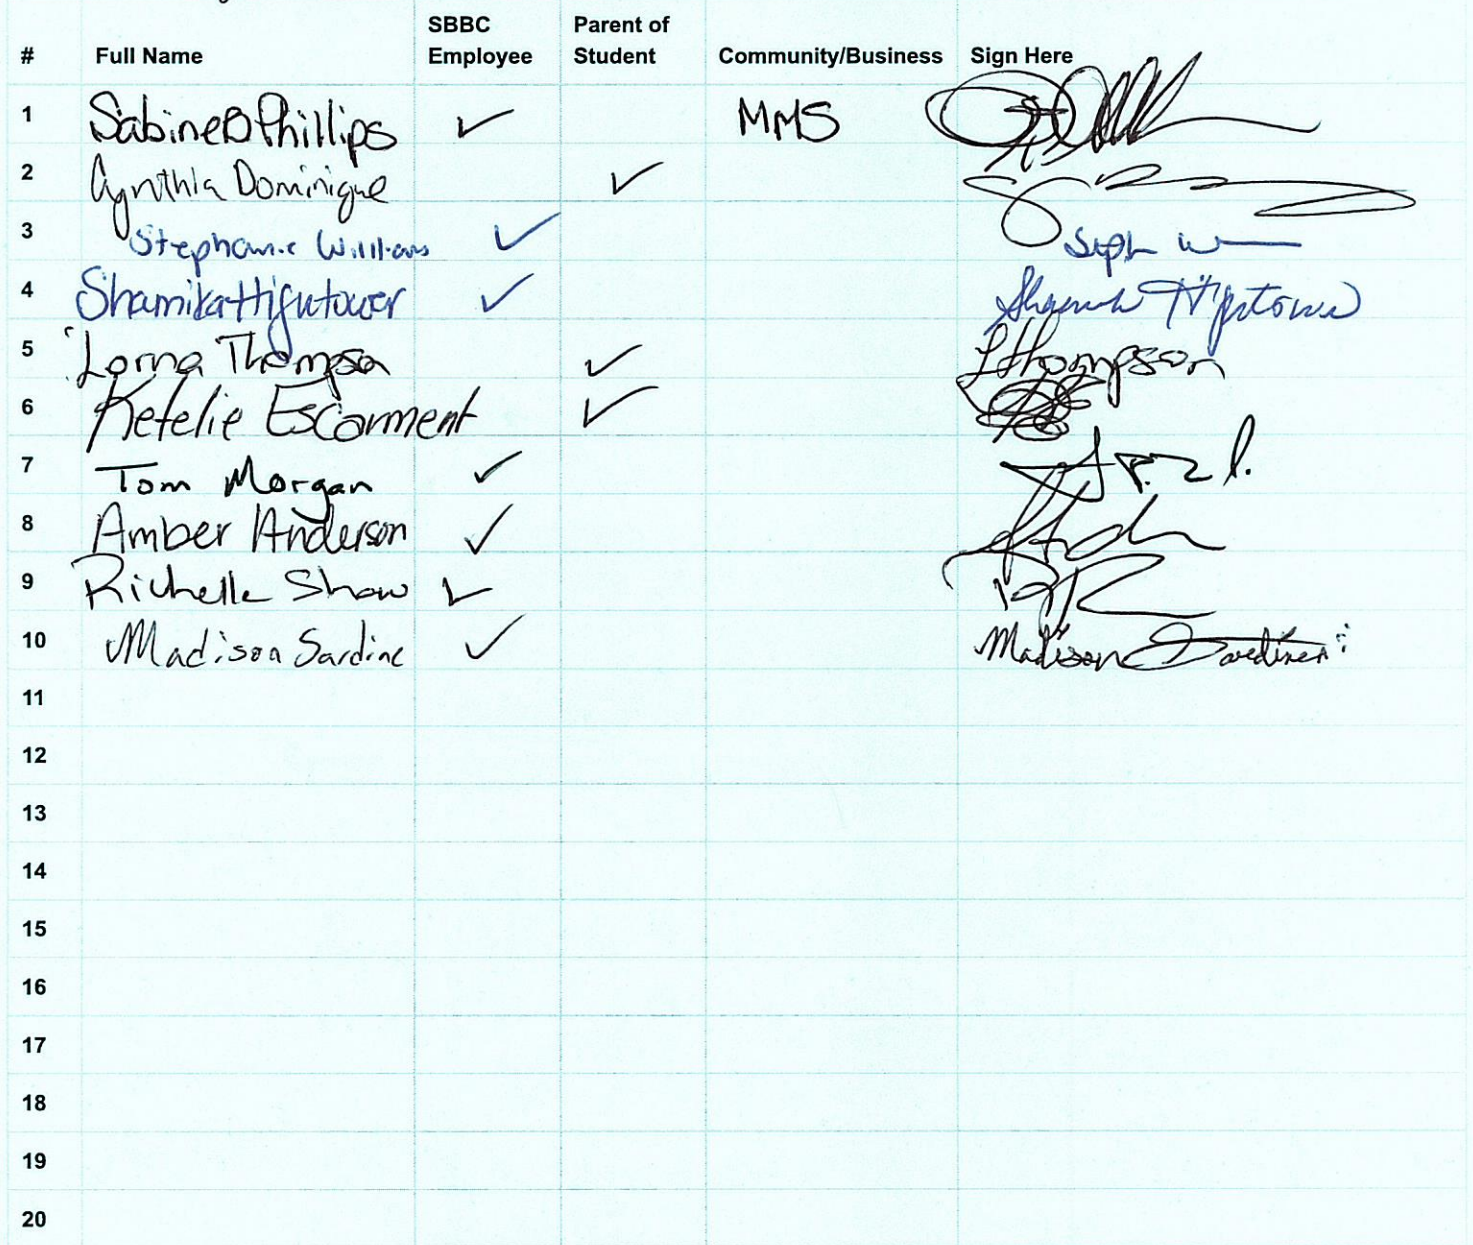 # Full Name SBBC Employee Parent of Student Community/Business Sign Here
1 Sabine B Phillips ✓ MMS
2 Cynthia Dominique ✓
3 Stephanie Williams ✓
4 Shamika Hightower ✓
5 Lorna Thompson ✓ LThompson
6 Ketelie Escarment ✓
7 Tom Morgan ✓
8 Amber Anderson ✓
9 Richelle Shaw ✓
10 Madison Sardine ✓ Madison
11
12
13
14
15
16
17
18
19
20